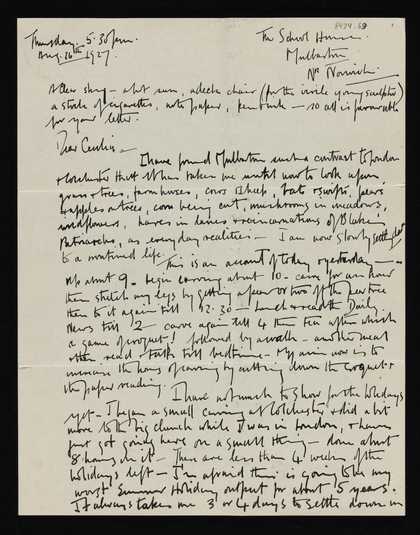 8424.63
Thursday. 5.30 pm.
Aug. 26th 1927.
The School House
Mulbarton
Nr Norwich.
A clear sky - a hot sun, a deck chair (for the virile young sculptor)
a stock of cigarettes, note paper, pen & ink - so all is favourable
for your letter.
Dear Cecilia -
I have found Mulbarton such a contrast to London
& Colchester that it has taken me until now to look upon,
grass & trees, farm horses, cows & sheep, bats & swifts, pears
& apples on trees, corn being cut, mushrooms in meadows,
wildflowers, hares in lanes & reincarnations of Blake's
Patriarchs, as everyday realities - I am now slowly settling down
to a routined life.
This is an account of today & yesterday -
Up about 9 - begin carving about 10 - carve for an hour
then stretch my legs by getting a pear or two off the pear tree
then to it again till 12.30 - Lunch & read the Daily
News till 2 - carve again till 4 then tea after which
a game of croquet! followed by a walk - another meal
then read & talk till bedtime. My aim now is to
increase the hours of carving by cutting down the croquet &
the paper reading.
I have not much to show for the holidays
yet - I began a small carving at Colchester & did a bit
more to the big church while I was in London, & have
just got going here on a small thing - done about
8 hours on it - There are less than 4 weeks of the
holidays left - I'm afraid this is going to be my
worst Summer Holiday output for about 5 years.
It always takes me 3 or 4 days to settle down in